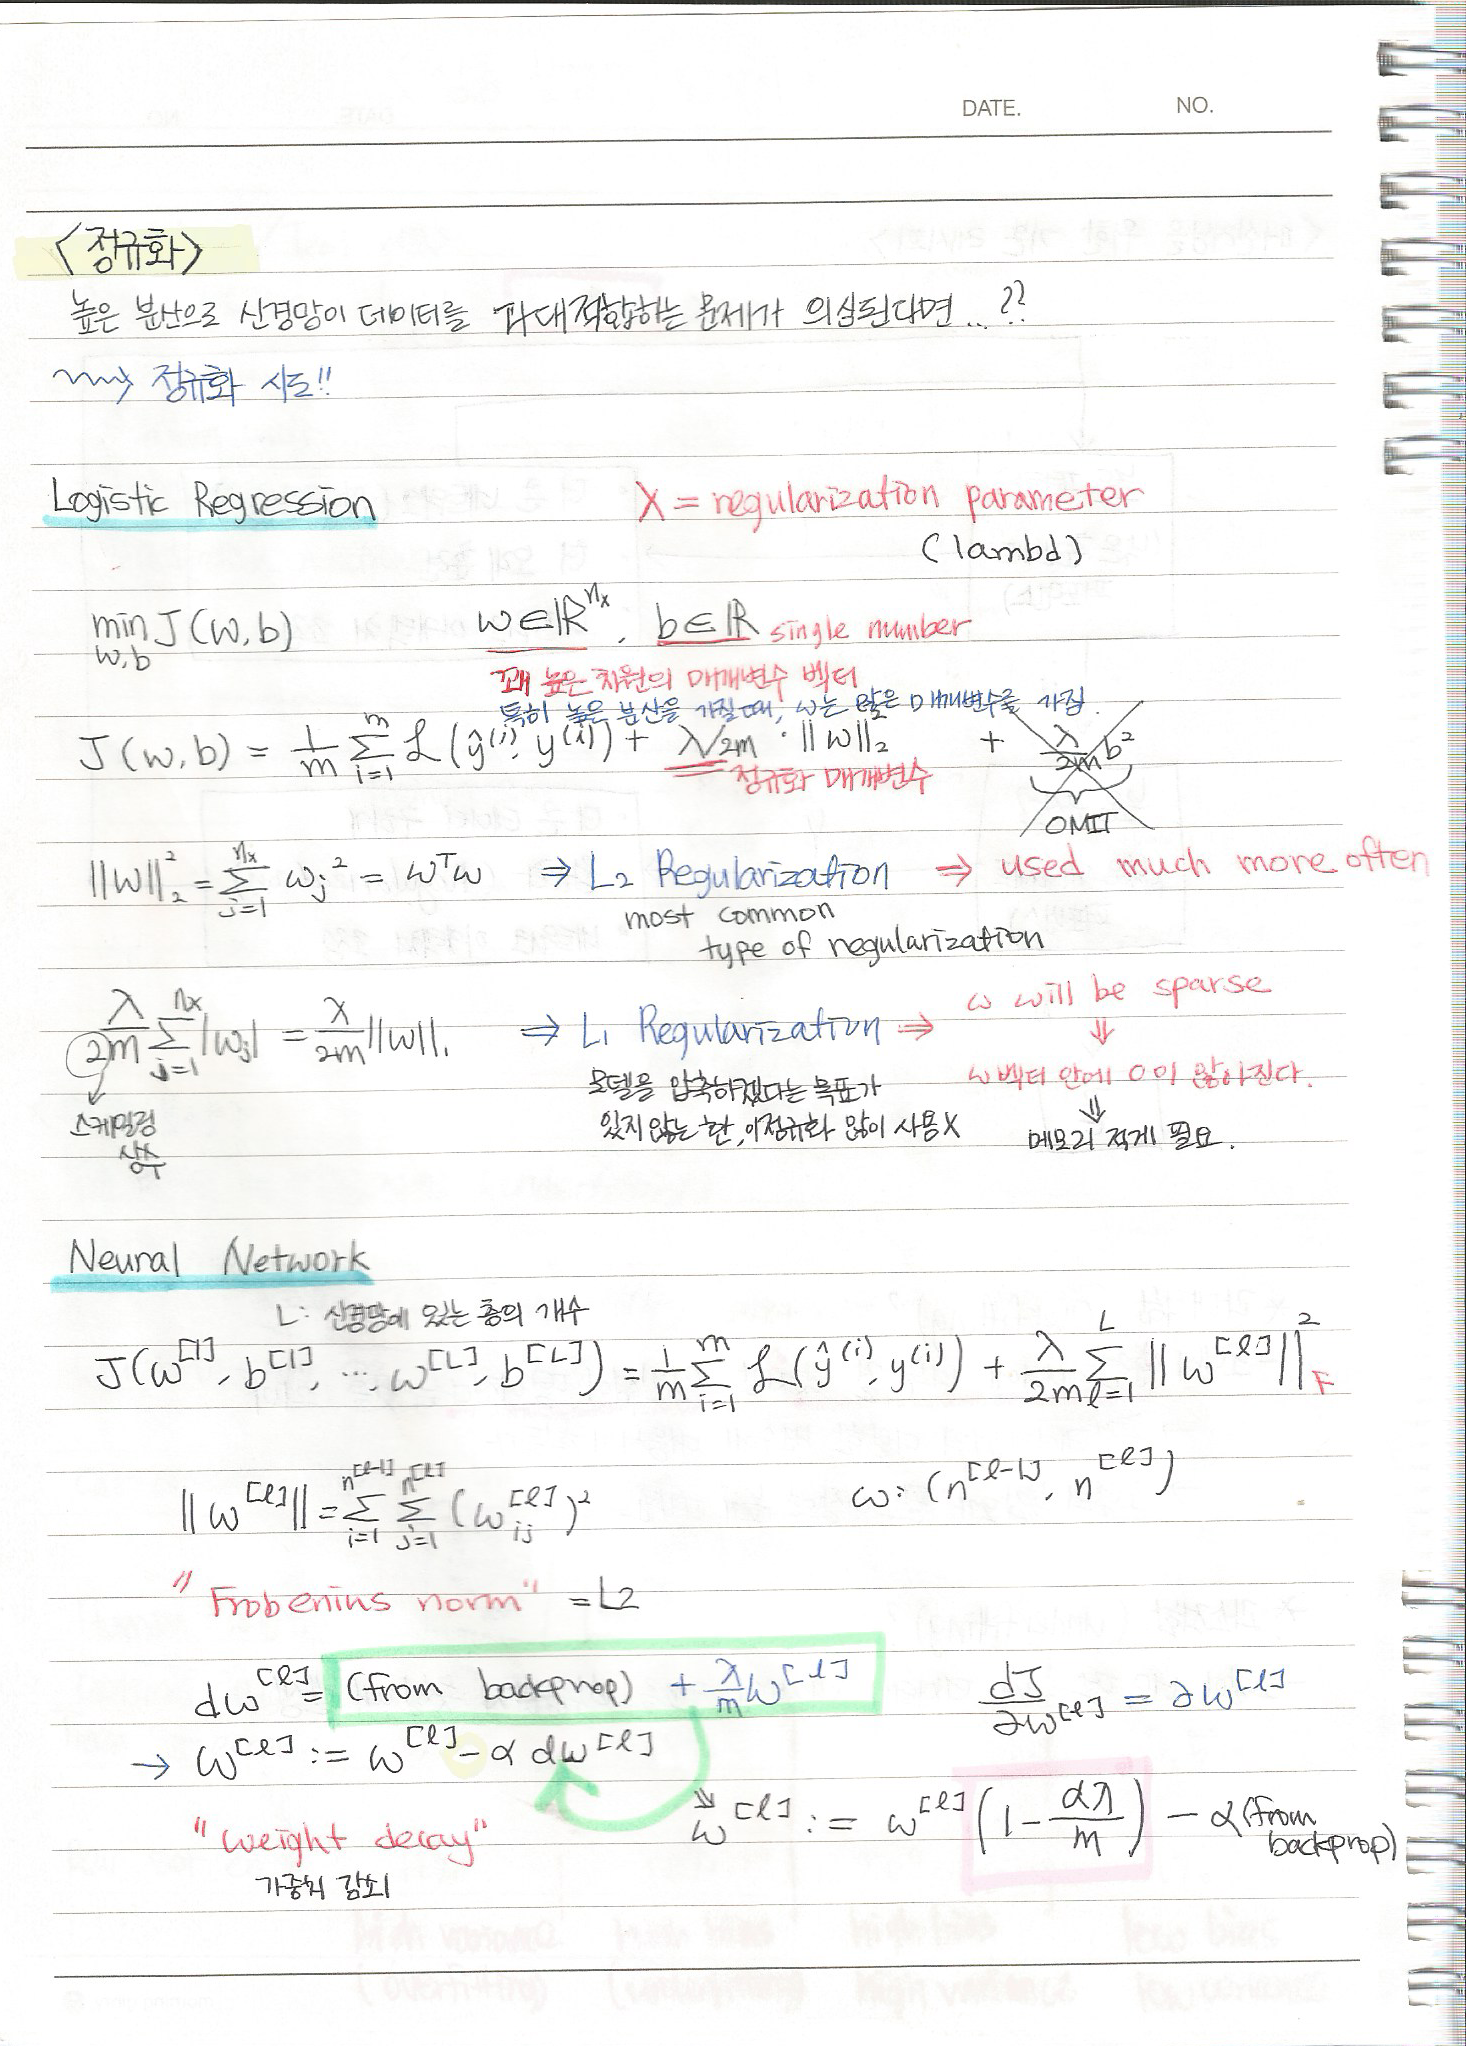 DATE. NO.
<정규화>
높은 분산으로 신경망이 데이터를 과대적합하는 문제가 의심된다면...??
~~~> 정규화 시도!!
Logistic Regression
λ = regularization parameter
(lambd)
min J(w,b)
w,b
w∈ℝ^nx, b∈ℝ single number
꽤 높은 차원의 매개변수 벡터
특히 높은 분산을 가질 때, w는 많은 매개변수를 가짐.
J(w,b) = 1/m Σ_{i=1}^{m} ℒ(ŷ^(i), y^(i)) + λ/2m · ||w||_2^2 + λ/2m b²
정규화 매개변수
OMIT
||w||_2^2 = Σ_{j=1}^{nx} w_j^2 = w^T w ⇒ L2 Regularization ⇒ used much more often
most common
type of regularization
λ/2m Σ_{j=1}^{nx} |w_j| = λ/2m ||w||_1 ⇒ L1 Regularization ⇒ w will be sparse
⇓
w벡터 안에 0이 많아진다.
⇓
메모리 적게 필요.
모델을 압축하겠다는 목표가
있지 않는 한, 이 정규화 많이 사용 X
스케일링
상수
Neural Network
L: 신경망에 있는 층의 개수
J(w^[1], b^[1], ..., w^[L], b^[L]) = 1/m Σ_{i=1}^{m} ℒ(ŷ^(i), y^(i)) + λ/2m Σ_{l=1}^{L} ||w^[l]||_F^2
||w^[l]|| = Σ_{i=1}^{n^[l-1]} Σ_{j=1}^{n^[l]} (w_ij^[l])² w: (n^[l-1], n^[l])
"Frobenius norm" = L2
dw^[l] = (from backprop) + λ/m w^[l] dJ/∂w^[l] = ∂w^[l]
→ w^[l] := w^[l] - α dw^[l]
w^[l] := w^[l] (1 - αλ/m) - α(from backprop)
"weight decay"
가중치 감쇠